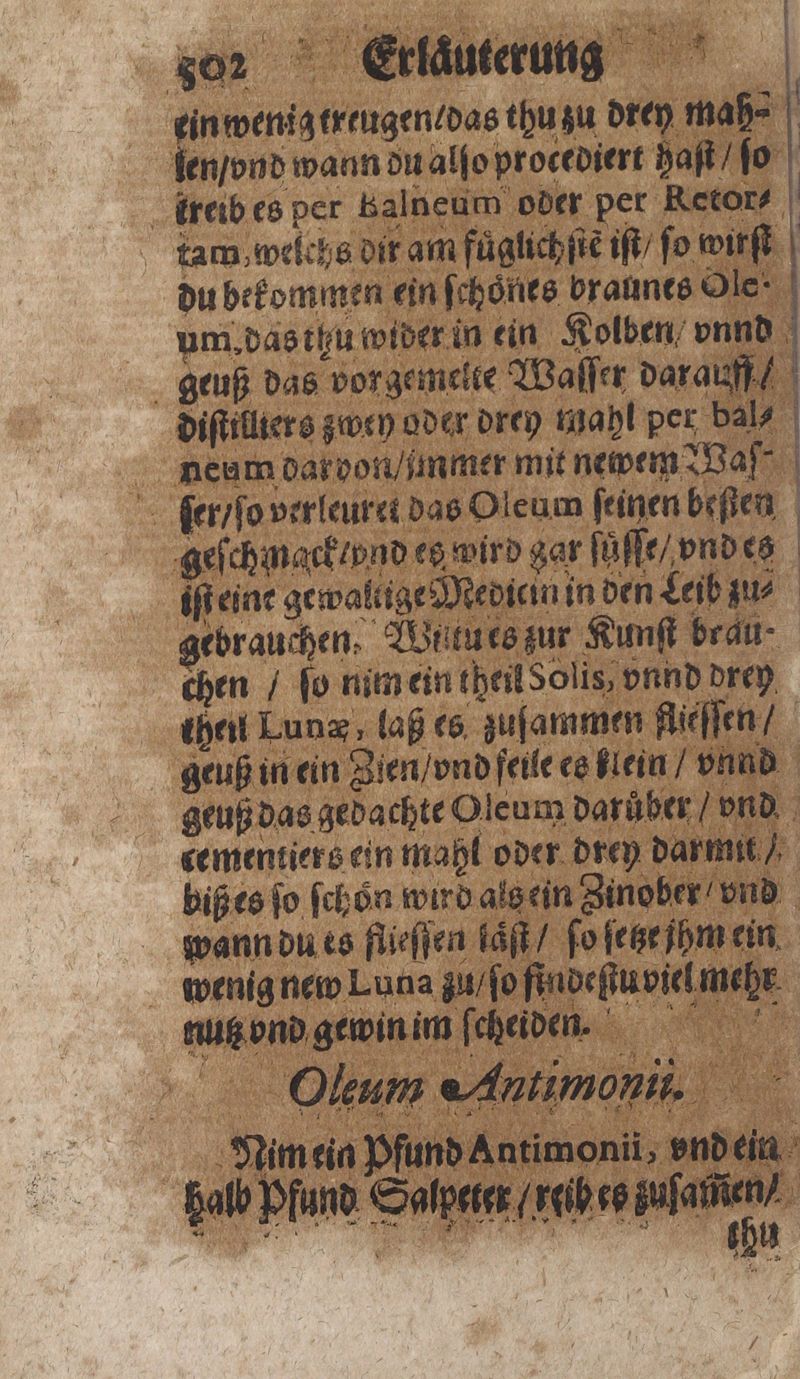 302 Erlåuterung
ein wenig treugen/das thu zu drey mah⸗
len/vnd wann du alſo procediert haſt / ſo
treib es per Balneum oder per Retor⸗
tam, welchs dir am fůglichſtẽ iſt/ ſo wirſt
du bekommen ein ſchönes braunes Ole⸗
um, das thu wider in ein Kolben/ vnnd
geuß das vorgemelte Waſſer darauff /
diſtilliers zwey oder drey mahl per bal⸗
neum darvon/immer mit newem Waſ⸗
ſer/ſo verleuret das Oleum ſeinen beſten
geſchmack/vnd es wird gar ſůſſe/ vnd es
iſt eine gewaltige Medicin in den Leib zu⸗
gebrauchen. Wiltu es zur Kunſt brau⸗
chen / ſo nim ein theil Solis, vnnd drey
theil Lunæ, laß es zuſammen flieſſen /
geuß in ein Zien/vnd feile es klein / vnnd
geuß das gedachte Oleum darůber / vnd
cementiers ein mahl oder drey darmit /
biß es ſo ſchön wird als ein Zinober/ vnd
wann du es flieſſen låſt / ſo ſetze jhm ein
wenig new Luna zu/ſo findeſtu viel mehr
nutz vnd gewin im ſcheiden.
Oleum Antimonii.
Nim ein Pfund Antimonii, vnd ein
halb Pfund Salpeter / reib es zuſam̃en/
thu